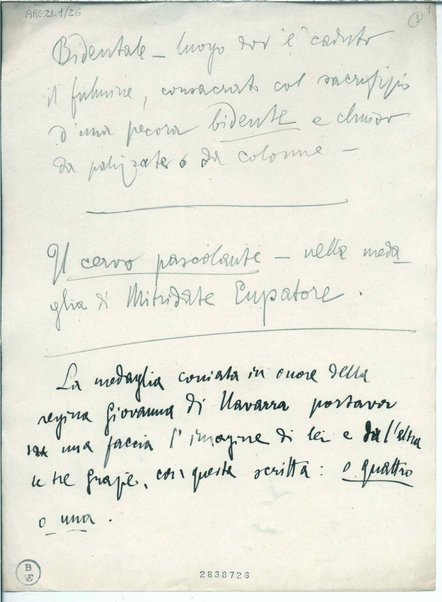 ARC.21.1/26
3
Bidentale – luogo dov'è caduto
il fulmine, consacrato col sacrifizio
d'una pecora bidente e chiuso
da palizzate o da colonne –
Il cervo pascolante – nella meda-
glia di Mitridate Eupatore.
La medaglia coniata in onore della
regina Giovanna di Navarra portava
una faccia l'imagine di lei e dall'altra
tre grapè, con questa scritta: o quattro
o una.
B
E
2838726